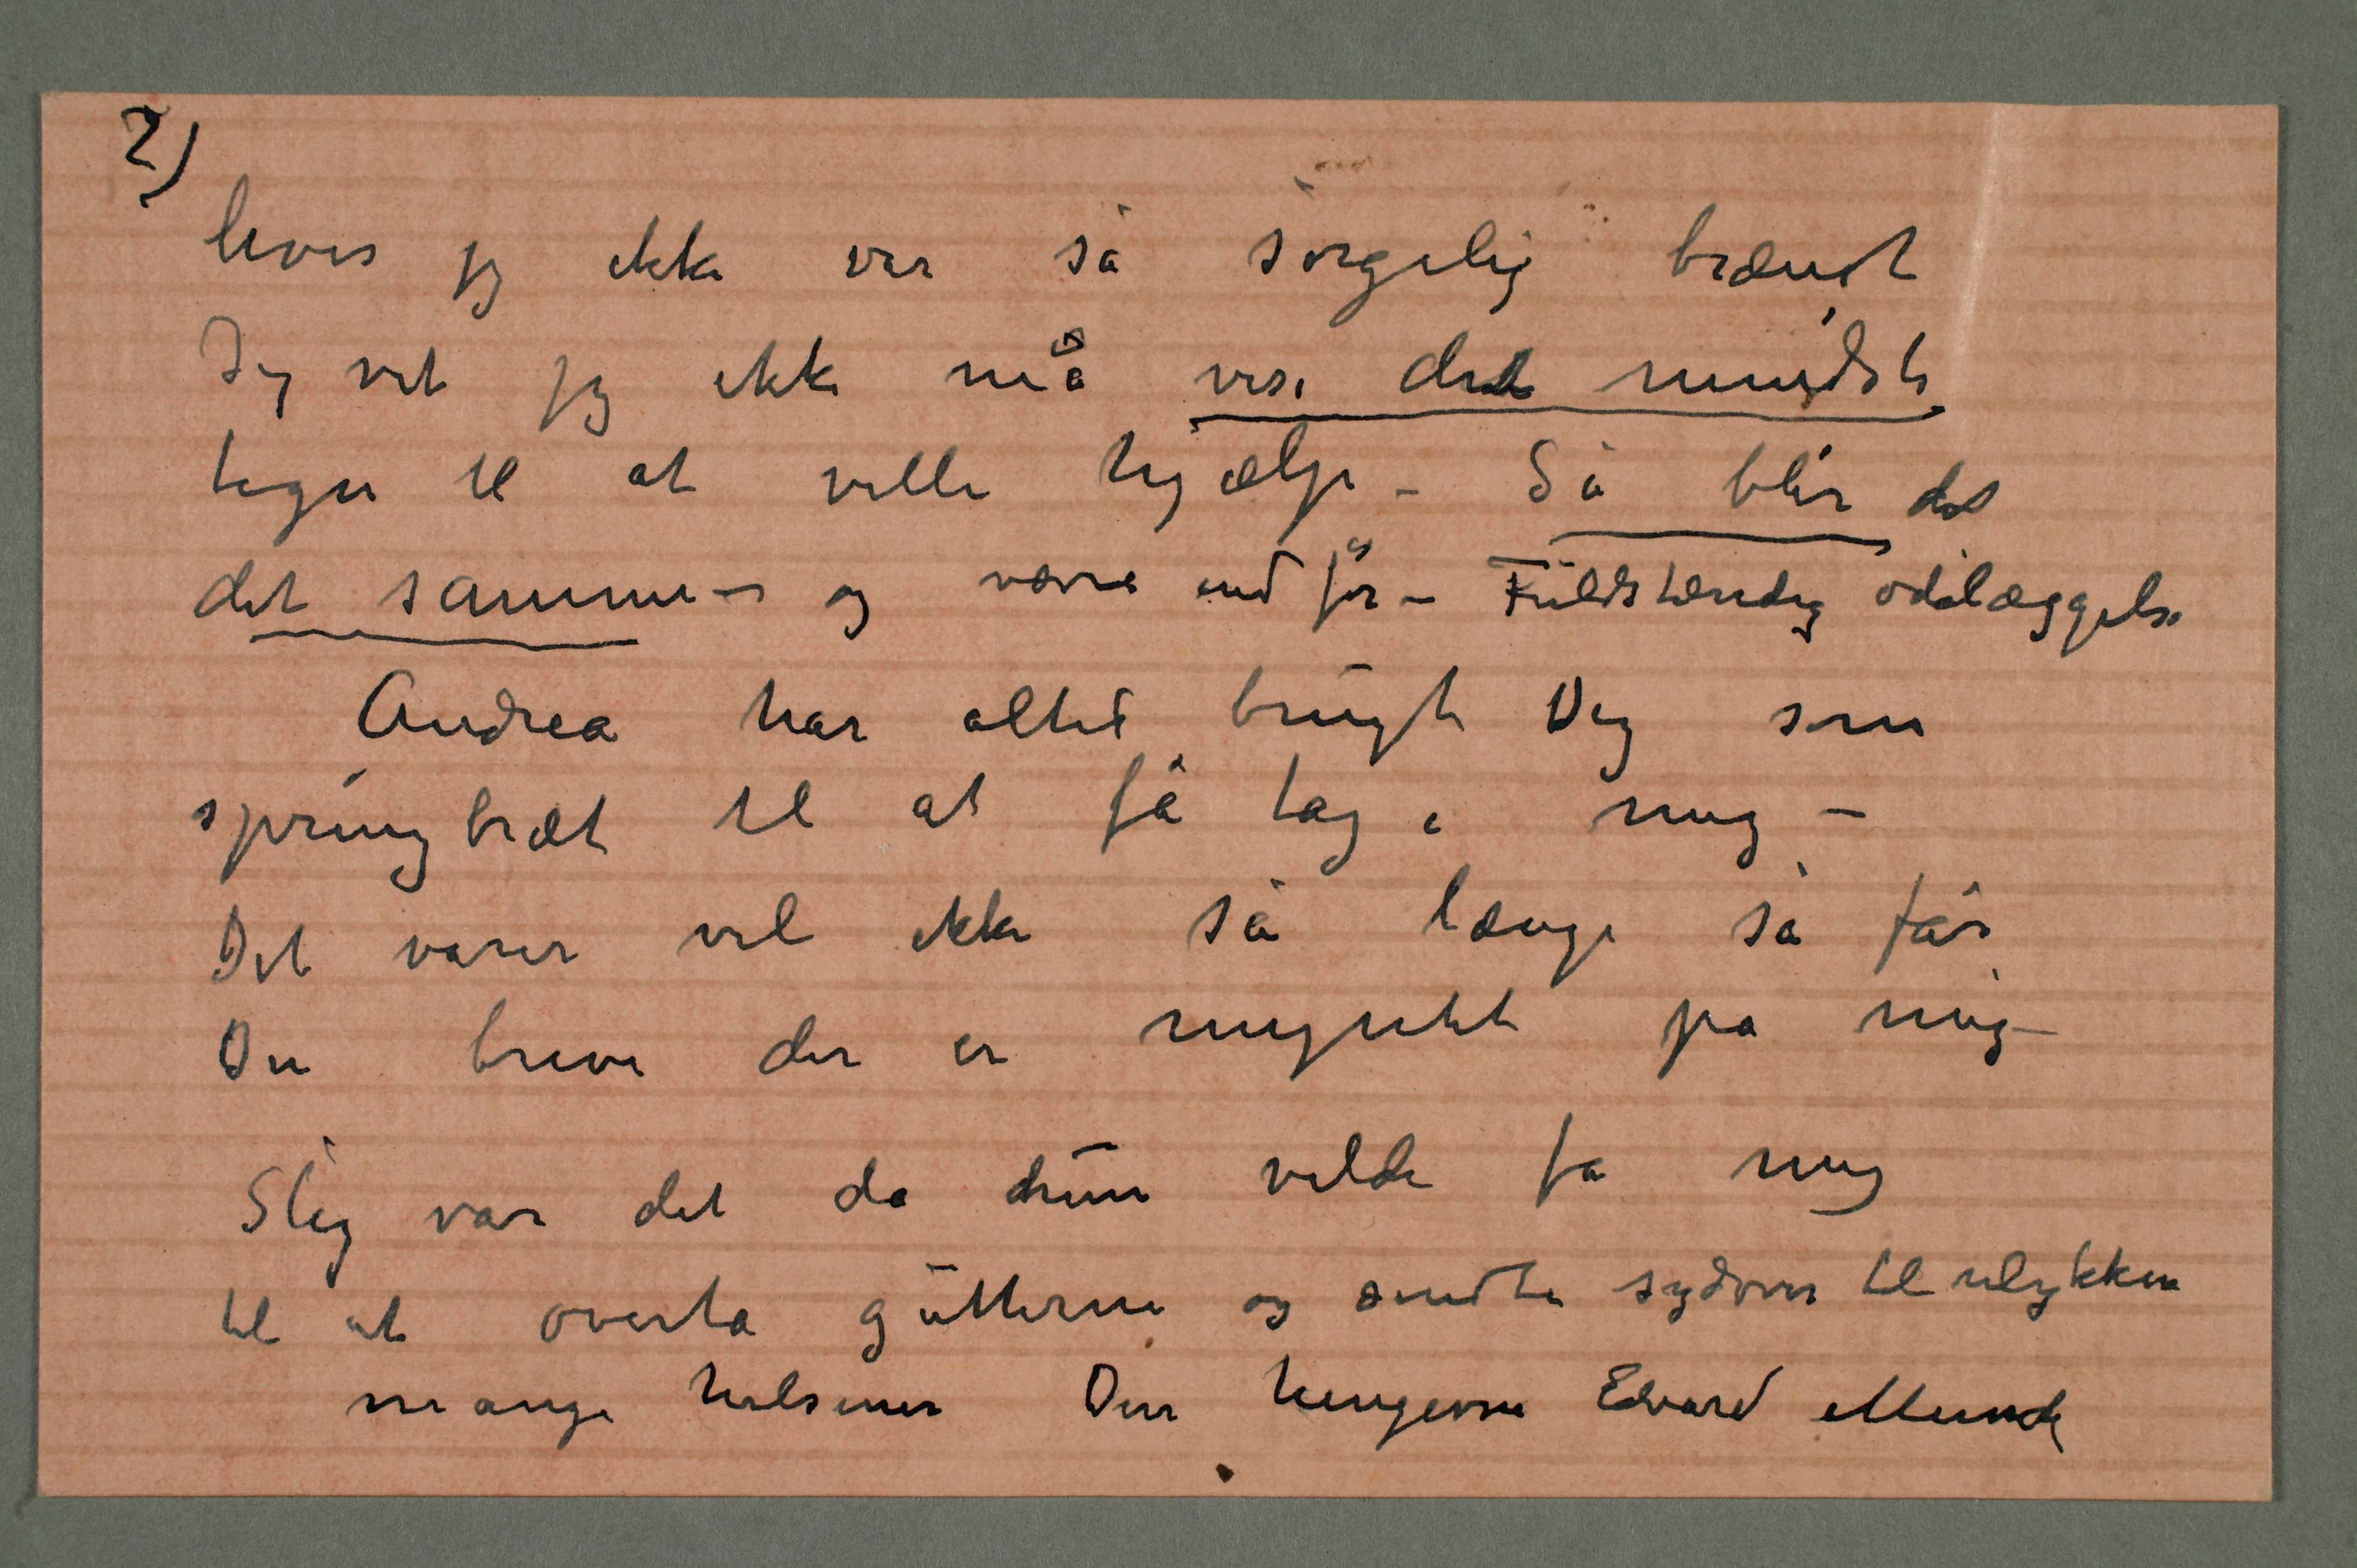 2)
hvis jeg ikke var så sørgelig brændt
Jeg vet jeg ikke må vise det mindste
tegn til at ville hjælpe – Så blir det
det samme – og værre end før – Fuldstændig ødelæggelse
Andrea har altid brugt Dig som
springbræt til at få tag i mig –
Det varer vel ikke så længe så får
Du breve der er myntet på mig –
Slig var det da hun vilde få mig
til at overta gutterne og sendte sydover til ulykken
mange hilsener Din hengivne Edvard Munch